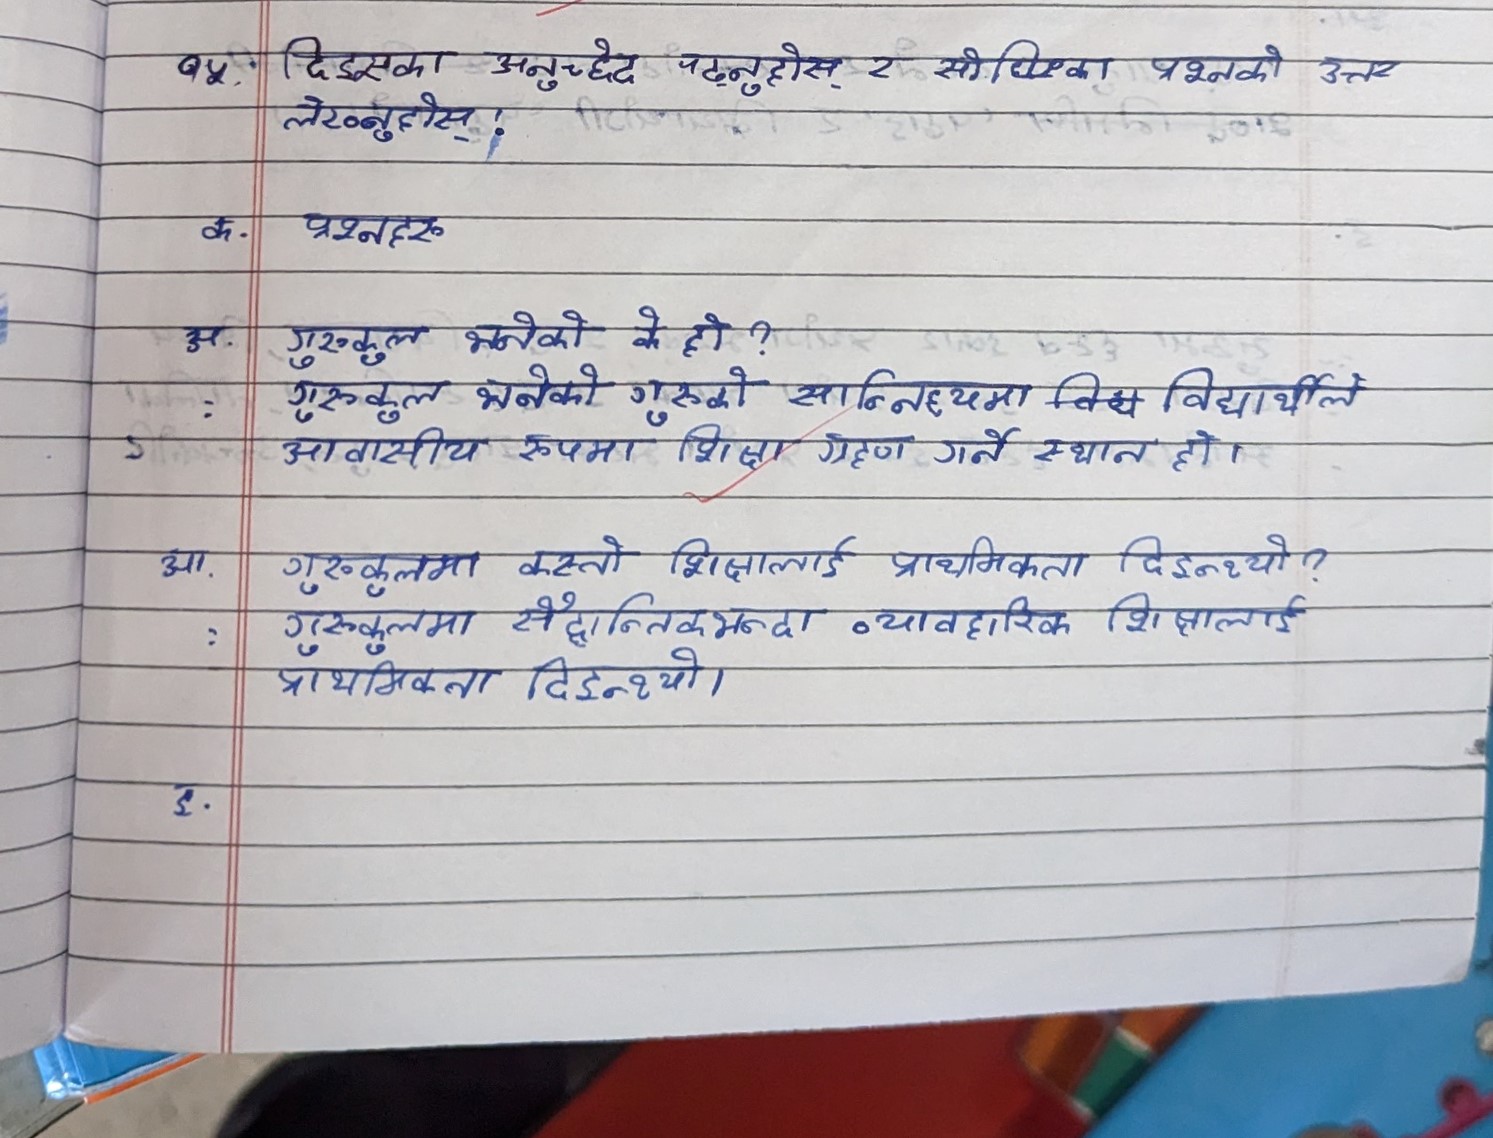 १५. दिइएका अनुच्छेद पढ्नुहोस् र सोधिएका प्रश्नको उत्तर
लेख्नुहोस् :
क. प्रश्नहरू
अ. गुरुकुल भनेको के हो ?
: गुरुकुल भनेको गुरुको सान्निध्यमा विद्यार्थीले
आवासीय रूपमा शिक्षा ग्रहण गर्ने स्थान हो।
आ. गुरुकुलमा कस्तो शिक्षालाई प्राथमिकता दिइन्थ्यो ?
: गुरुकुलमा सैद्धान्तिकभन्दा व्यावहारिक शिक्षालाई
प्राथमिकता दिइन्थ्यो।
इ.